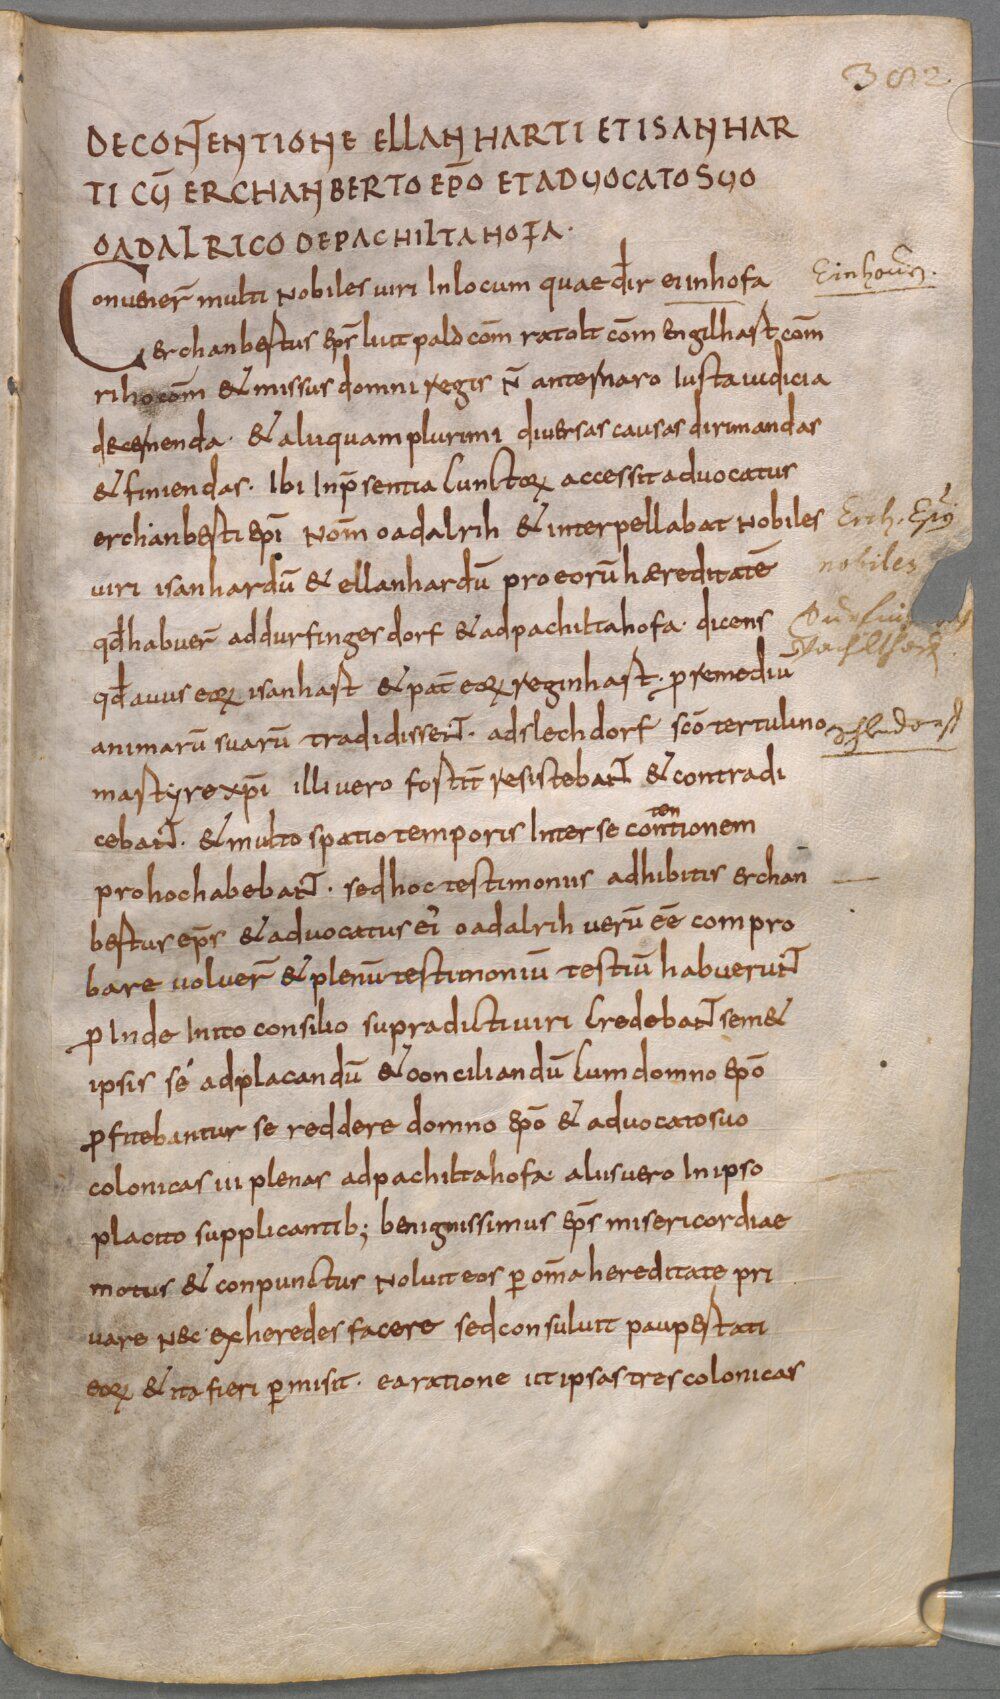 382
DE CONTENTIONE ELLANHARTI ET ISANHAR
TI CŪ ERCHANBERTO EP̄O ET ADUOCATO SUO
OADALRICO DE PACHILTAHOFA·
Conuener̄ multi nobiles uiri In locum quae dr̄ einhofa
Einhoven.
erchanbertus ep̄s luitpald com̄ ratolt com̄ engilhart com̄
riho com̄ & missus domni regis n̄ anternaro Iusta iudicia
decernenda· & alii quam plurimi diuersas causas dirimandas
& finiendas· Ibi In p̄sentia cunctoꝝ accessit aduocatus
erchanberti ep̄i nom̄ oadalrih & interpellabat nobiles
Erch. Ep̄ꝰ
uiri isanhardū & ellanhardū pro eorū hæreditatē
nobiles
qđ habuer̄ ad durfingesdorf & ad pachiltahofa· dicens
qđ auus eoꝝ isanhart & pat̄ eoꝝ reginhart· ꝑ remediū
animarū suarū tradidissent· ad slechdorf sc̄o tertulino
Schledorf
martyre xp̄i illi uero fortit̄ resistebant & contradi
cebant· & multo spatio temporis Inter se contentionem
pro hoc habebant· sed hoc testimoniis adhibitis erchan
bertus ep̄s & aduocatus ei oadalrih uerū eē compro
bare uoluer̄ & plenū testimoniū testiū habuerunt
ꝓ Inde Inito consilio supradicti uiri credebant sem&
ipsis sé ad placandū & conciliandū cum domno ep̄o
ꝓfitebantur se reddere domno ep̄o & aduocato suo
colonicas iii plenas ad pachiltahofa· aliis uero In ipso
placito supplicantib; benignissimus ep̄s misericordiae
motus & conpunctus noluit eos ꝑ om̄a hereditate pri
uare nec exheredes facere sed consuluit pauꝑtati
eoꝝ & ita fieri ꝑmisit· ea ratione ut ipsas tres colonicas